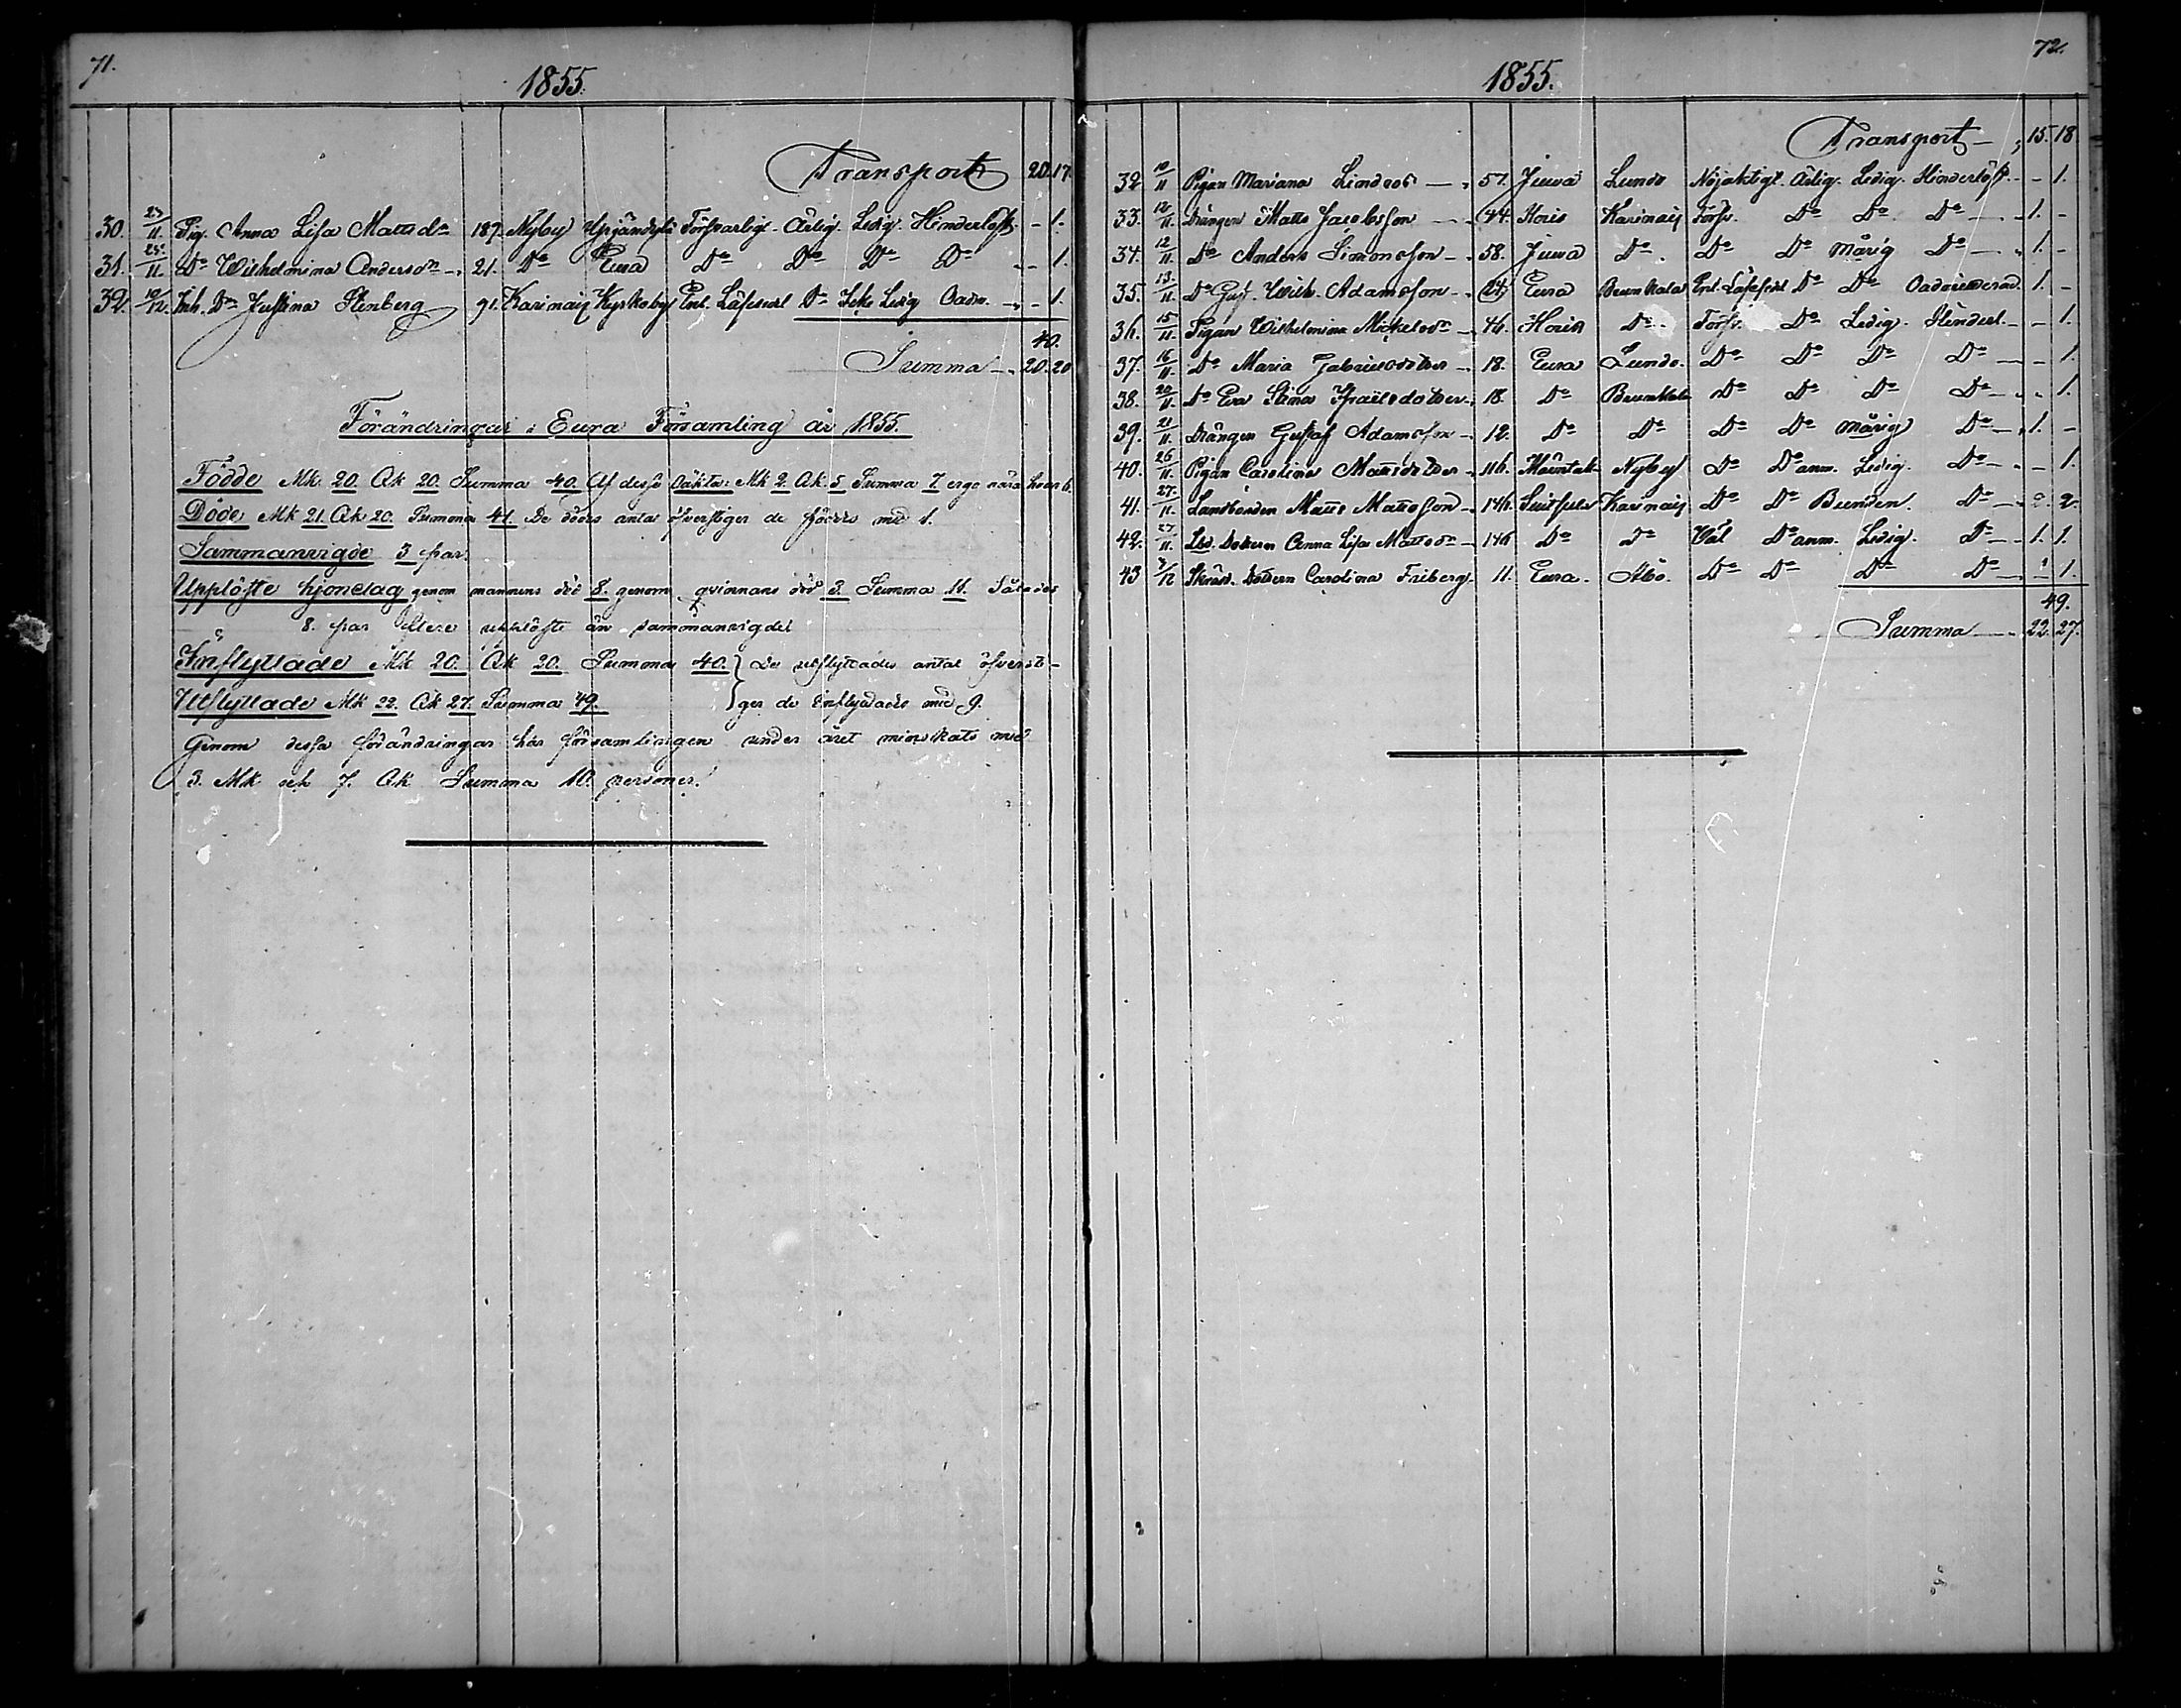 71.
1855.
Transport 20. 17.
30. 23/11. Pig. Anna Lisa Mattsdr 187. Nyby Försvarligt Ärlig. Ledig. Hinderlöst. - 1.
31. 25/11. Do Wilhelmina Andersdr 21. Do Eura Do Do Do Do - 1.
32. 10/12. Inh. Dr Justina Stenberg 91. Karinais Kyrkoby Enl. Läsesedl Do Icke Ledig Oadm. - 1.
40.
Summa 20. 20
Förändringar i Eura Församling år 1855.
Födde Mk. 20. Qk 20. Summa 40. Af dessa oäkta: Mk 2. Qk. 5 Summa 7. ergo nära hvar 6.
Döde Mk 21. Qk 20. Summa 41. De dödes antal öfverstiger de föddes med 1.
Sammanvigde 3 par.
Upplöste hjonelag genom mannens död 8. genom qvinnans död 3. Summa 11. Således
8. par flere upplöste än sammanvigde.
Inflyttade Mk 20. Qk 20. Summa 40. } De utflyttades antal öfversti-
Utflyttade Mk 22. Qk 27. Summa 49. } ger de inflyttades med 9.
Genom dessa förändringar har församlingen under året minskats med
3. Mk och 7. Qk Summa 10. personer.
72.
1855.
Transport 15. 18
32 10/11 Pigan Mariana Lindroos 57. Juva Lundo Nöjaktigt. Ärlig. Ledig. Hinderlöst. - 1.
33. 12/11. Drängen Matts Jacobsson 44. Hois Karinais Försv. Do Do Do 1. -
34. 12/11. Do Anders Simonsson 58. Juva Do Do Do Mårig Do 1. -
35. 13/11. Do Gust. Wilh. Adamsson 24. Eura Brunkala Enl. Läsesedl Do Do Oadmitterad. 1. -
36. 15/11. Pigan Wilhelmina Mickelsdr 46. Hois Do Försv. Do Ledig. Hinderl. - 1.
37. 16/11. Do Maria Gabrielsdotter 18. Eura Lundo. Do Do Do Do - 1.
38. 20/11. Do Eva Stina Israelsdotter 18. Do Brunkala Do Do Do Do - 1.
39. 21/11. Drängen Gustaf Adamsson 12. Do Do Do Do Mårig Do 1. -
40. 26/11. Pigan Carolina Mattsdotter 116. Nyby Do Do anm. Ledig. Do - 1.
41. 27/11. Landbonden Matts Mattsson 146. Karinais Do Do Bunden. Do 2. 2.
42. 27/11. Lbd. Dottern Anna Lisa Mattsdr 146 Do Do Väl Do anm. Ledig. Do 1. 1.
43 7/12 Skräd. Dottern Carolina Friberg 11. Eura. Åbo. Do Do Do Do 1 1.
49.
Summa 22. 27.